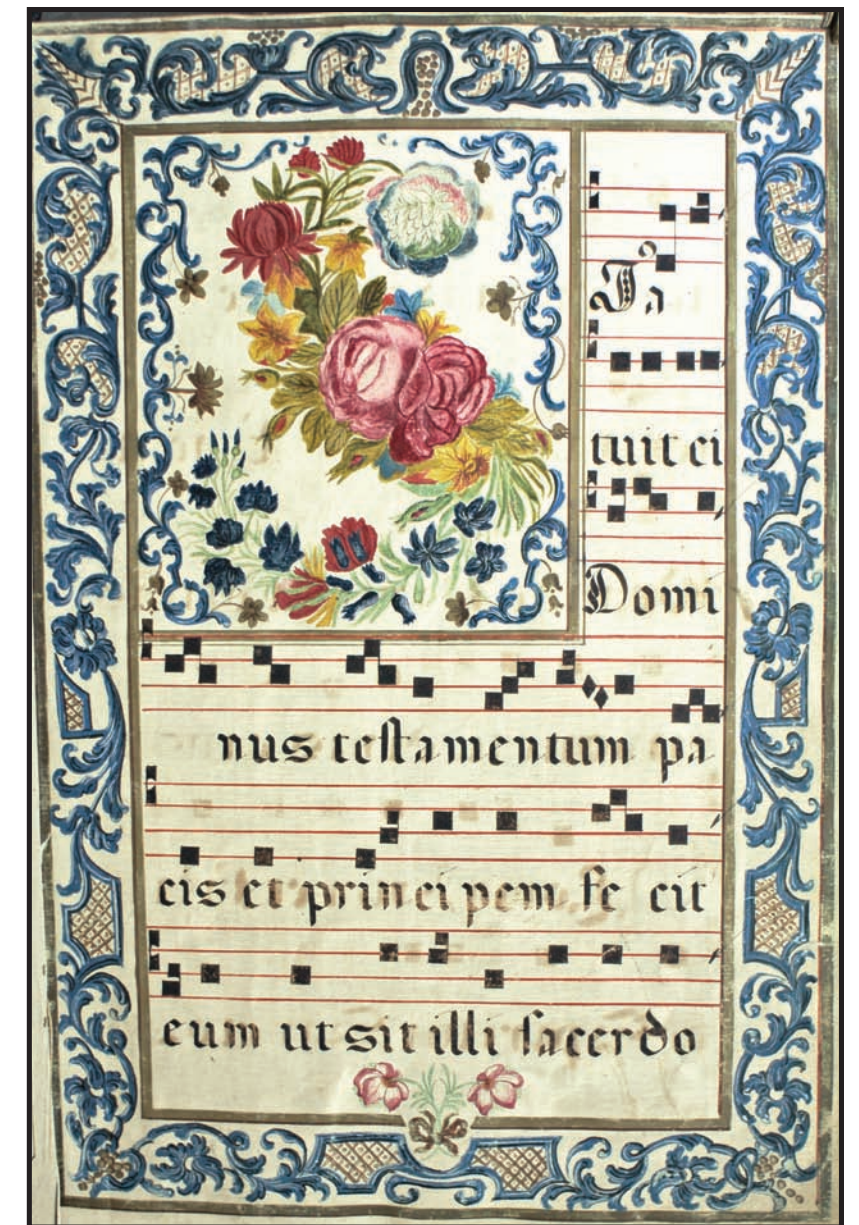 Ta
tuit ei
Domi
nus testamentum pa
cis et principem fe cit
eum ut sit illi sacerdo